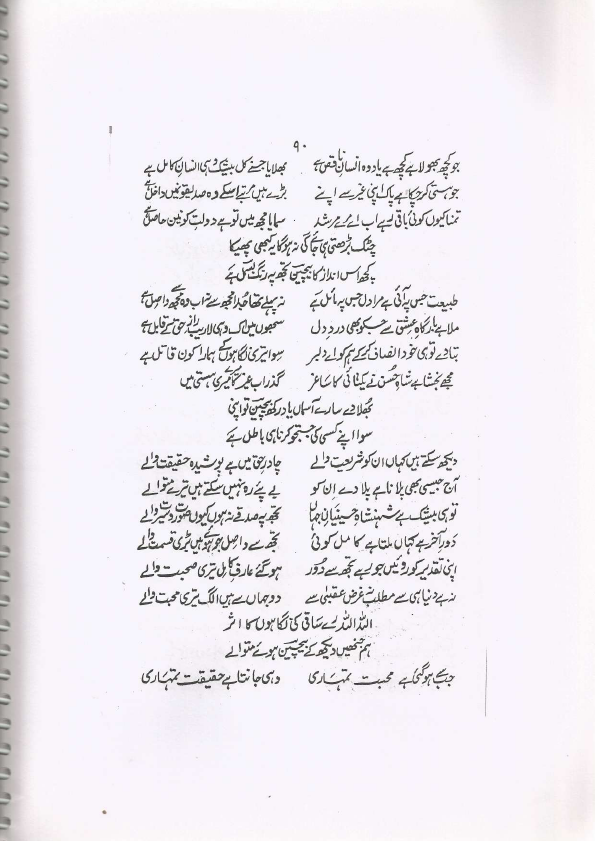 ۹۰
جو کچھ بھولا ہے کچھ ہے یاد وہ انسان ناقص ہے بھلایا جسنے کل بیشک وہی انسان کامل ہے
جو ہستی کر چکا ہے پاک اپنی غیر سے اپنے بڑے ہیں مرتبے اسکے وہ صدیقونمیں داخل ہے
تمنا کیوں کوئی باقی رہے اب اے مرے مرشد سمایا مجھ میں تو ہے دولت کونین حاصل ہے
چٹک بڑھتی ہی جائے گی نہ ہوگا یہ کبھی پھیکا
کچھ اس انداز کا بیچین تجھ پہ رنگ بسمل ہے
طبیعت جس پہ آئی ہے مرا دل جس پہ مائل ہے نہ پہلے تھا جدا مجھ سے نہ اب وہ مجھ سے واصل ہے
ملا ہے بارگاہ عشق سے جسکو بھی درد دل سمجھوں میں اک وہی لاریب راز حق کے قابل ہے
بتا دے تو ہی خود انصاف کر کے ہم کو اے دلبر سوا تیری نگاہوں کے ہمارا کون قاتل ہے
مجھے بخشا ہے شاہ حسن نے یکتائی کا ساغر گذر اب غیر کا میری ہستی میں
بھلا دے سارے آسماں یاد رکھ بیچین تو اپنی
سوا اپنے کسی کی جستجو کرنا ہی باطل ہے
دیکھ سکتے ہیں کہاں ان کو شریعت والے چادر حق میں ہے پوشیدہ حقیقت والے
آج جیسی بھی پلانا ہے پلا دے ان کو بے پئے رہ نہیں سکتے ہیں ترے متوالے
تو ہی بیشک ہے شہنشاہ حسینان جہاں تجھ پہ صدقے نہ ہوں کیوں صورت و سیرت والے
دور آخر ہے کہاں ملتا ہے کامل کوئی تجھ سے واصل جو ہوئے ہیں بڑی قسمت والے
اپنی تقدیر کو روئیں جو رہے تجھ سے دور ہو گئے عارف کامل تری صحبت والے
نہ ہے دنیا ہی سے مطلب نہ غرض عقبیٰ سے دو جہاں سے ہیں الگ تری محبت والے
اللہ اللہ رے ساقی کی نگاہوں کا اثر
ہم جنھیں دیکھ کے بیچین ہوئے متوالے
جسے ہو گئی ہے محبت تمہاری وہی جانتا ہے حقیقت تمہاری